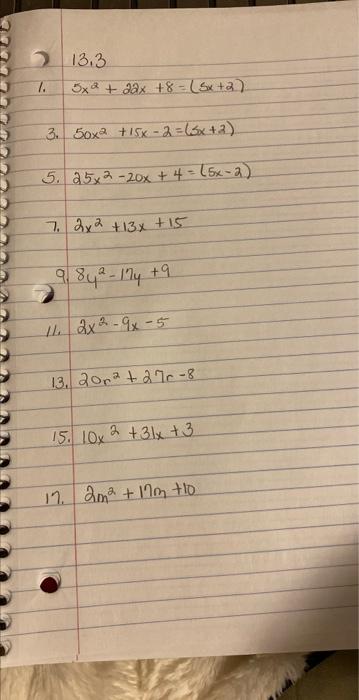 13.3
1. 5x² + 22x + 8 = (5x+2)
3. 50x² + 15x - 2 = (5x+2)
5. 25x² - 20x + 4 = (5x-2)
7. 2x² + 13x + 15
9. 8y² - 17y + 9
11. 2x² - 9x - 5
13. 20r² + 27r - 8
15. 10x² + 31x + 3
17. 2m² + 17m + 10